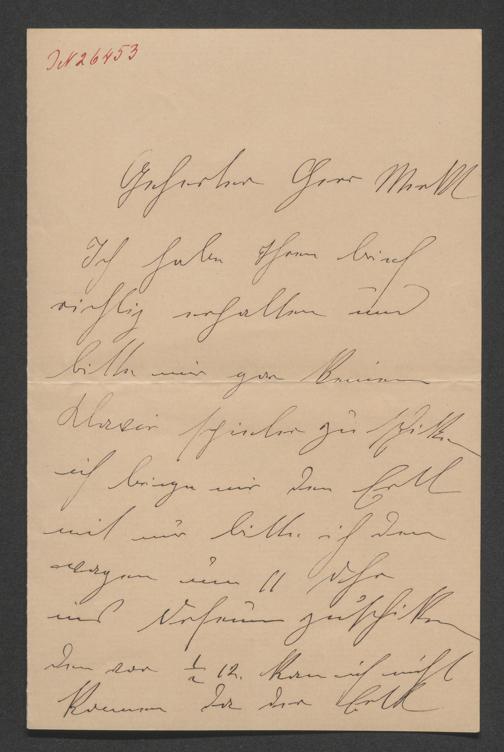 IN 26453
Geherter Herr Merkl
Ich habe Ihren brief
richtig erhalten und
bitte mir gar keinen
Klavir spieler zu schiken
ich bringe mir den Ertl
mit nur bitte ich den
wagen um 11 Uhr
ins Orfeum zuschiken
den vor ½ 12. kan ich nicht
kommen da der Ertl